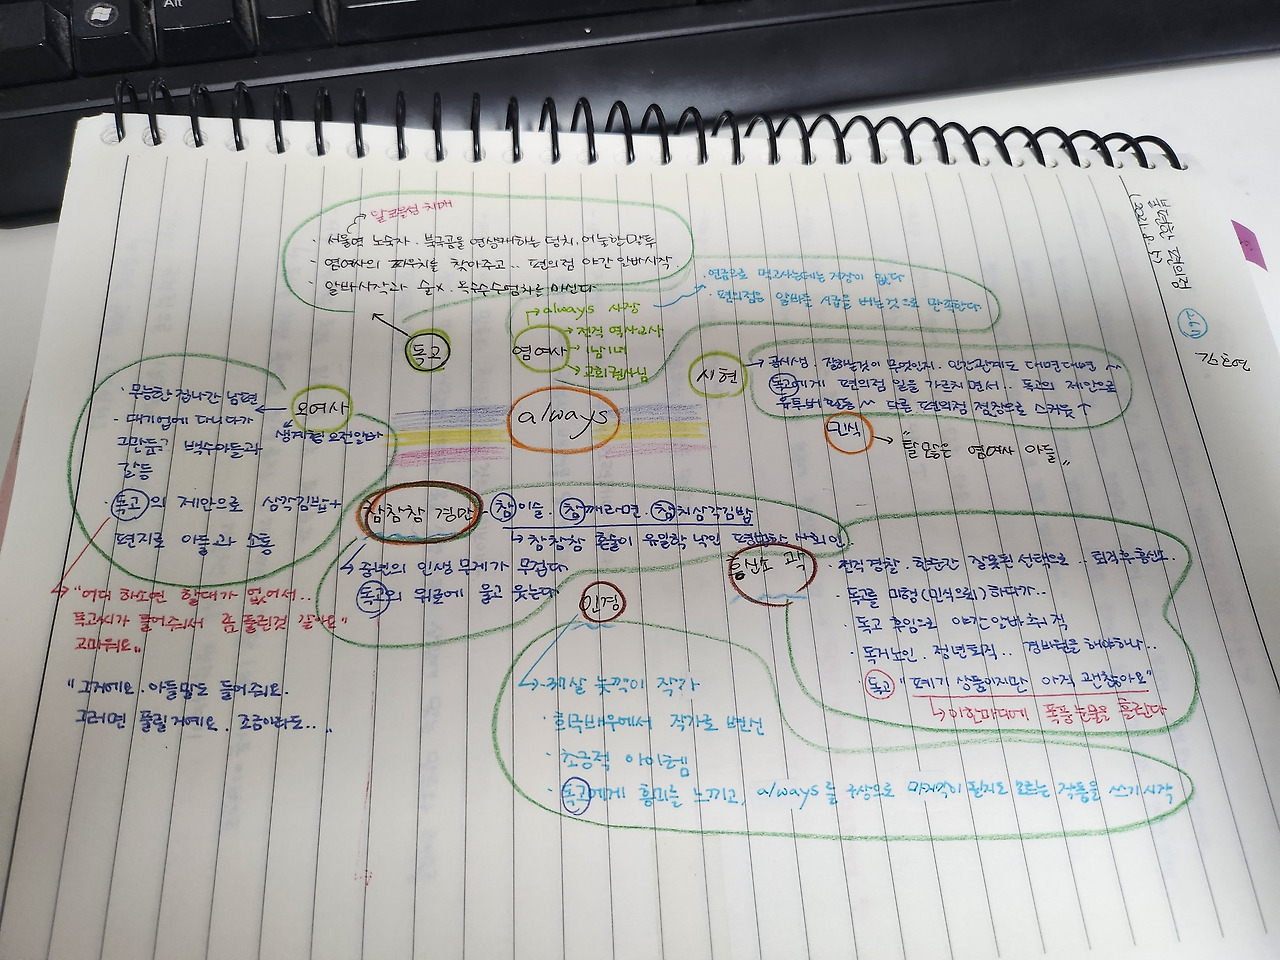 Alt
불편한 편의점
(2021. 4.
267
김호연
알코올성 치매
· 서울역 노숙자. 북극곰을 연상케하는 덩치. 어눌한 말투
· 염여사의 파우치를 찾아주고.. 편의점 야간 알바시작
· 알바시작과 술x. 옥수수수염차를 마신다
독고
염여사
always 사장
전직 역사교사
1남1녀
교회권사님
· 연금으로 먹고사는데는 지장이 없다
· 편의점은 알바들 시급을 버는것으로 만족한다
시현
공시생. 잘하는것이 무엇인지. 인간관계도 대면대면 ~
독고에게 편의점 일을 가르치면서.. 독고의 제안으로
유투버 만들~ 다른 편의점 점장으로 스카웃 ↑
민식
"탈많은 염여사 아들"
always
오여사
생계형 오전알바
· 무능한 집나간 남편
· 대기업에 다니다가
그만둔 백수아들과
갈등
· 독고의 제안으로 삼각김밥+
편지로 아들과 소통
"어디 하소연 할데가 없어서..
독고씨가 들어줘서 좀 풀린것 같아요"
고마워요"
"그거예요. 아들말도 들어줘요.
그러면 풀릴거예요. 조금이라도.."
참참참 경만
참이슬. 참깨라면. 참치삼각김밥
참참참 혼술이 유일학 낙인 평범한 사회인..
중년의 인생 무게가 무겁다
독고의 위로에 울고 웃는다
흥신소 곽
· 전직경찰. 한순간 잘못된 선택으로.. 퇴직후 흥신소..
· 독고를 미행(민식의뢰)하다가..
· 독고 후임으로 야간알바 취직
· 독거노인. 정년퇴직.. 경비원을 해야하나..
독고 "폐기 상품이지만 아직 괜찮아요"
이한마디에 폭풍눈물을 흘린다
인경
37살 늦깍이 작가
· 희극배우에서 작가로 변신
· 초긍적 아이템
· 독고에게 흥미를 느끼고, always를 구상으로 마지막이 될지도 모르는 작품을 쓰기시작